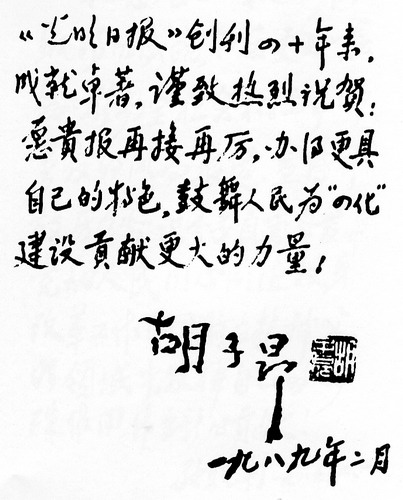 《光明日报》创刊四十年来，
成就卓著，谨致热烈祝賀；
愿貴报再接再厉，办得更具
自己的特色，鼓舞人民为“四化”
建设貢献更大的力量！
胡子昂
一九八九年二月